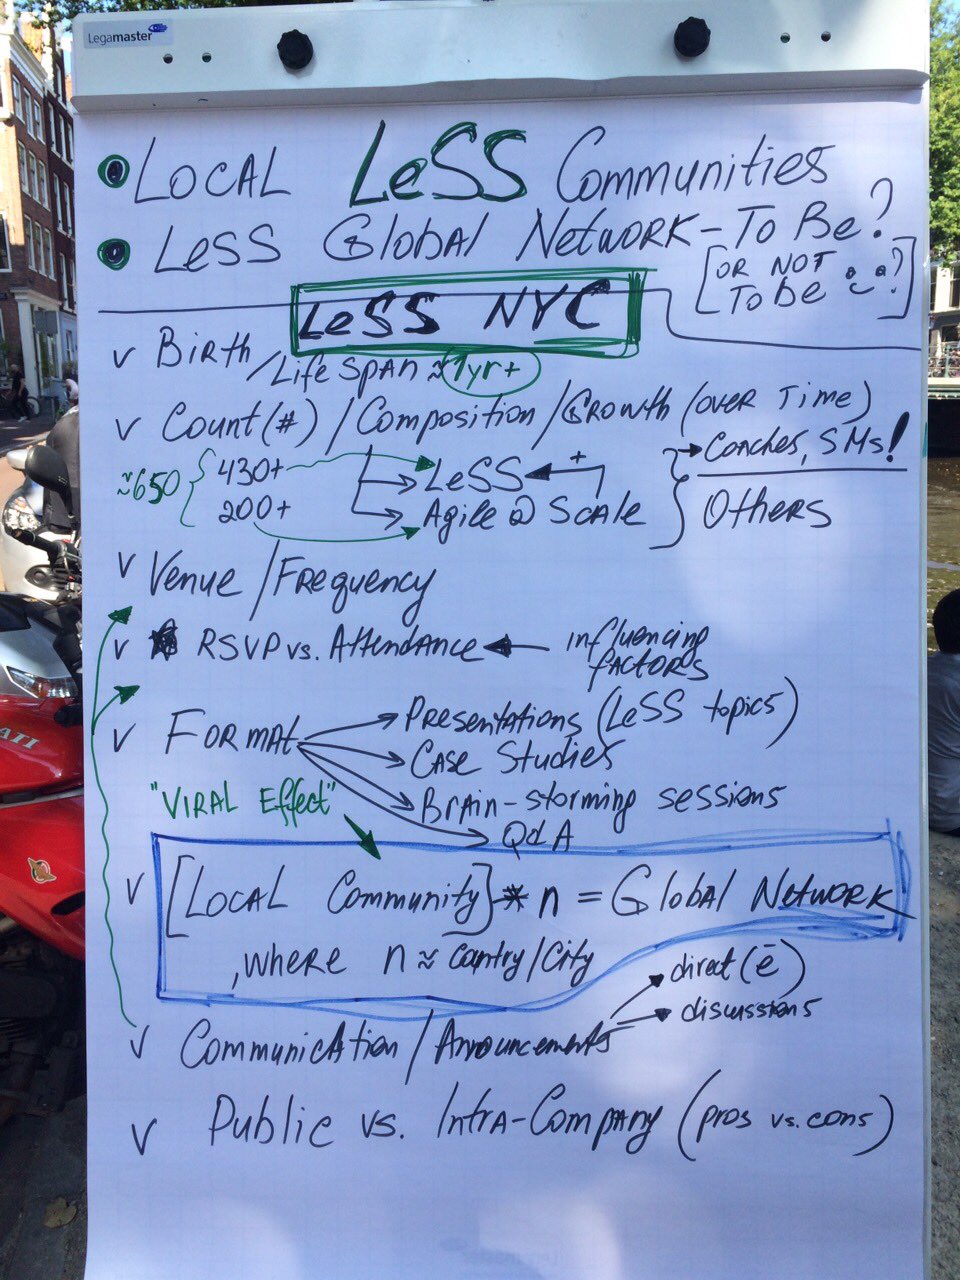 Legamaster
LOCAL LeSS Communities
LeSS Global Network - To Be?
[OR NOT
To be ?]
LeSS NYC
v Birth
/Life span ≈ 1yr+
v Count(#) / Composition / Growth (over Time)
≈650 { 430+ LeSS + } Coaches, SMs!
200+ Agile @ Scale Others
v Venue / Frequency
v RSVP vs. Attendance influencing
factors
v Format Presentations (LeSS topics)
Case Studies
"VIRAL Effect" Brain-storming sessions
Q&A
v [Local Community] * n = Global Network
, where n ≈ cantry/City
direct (ē)
discussions
v Communication / Announcements
v Public vs. Intra-Company (pros vs. cons)